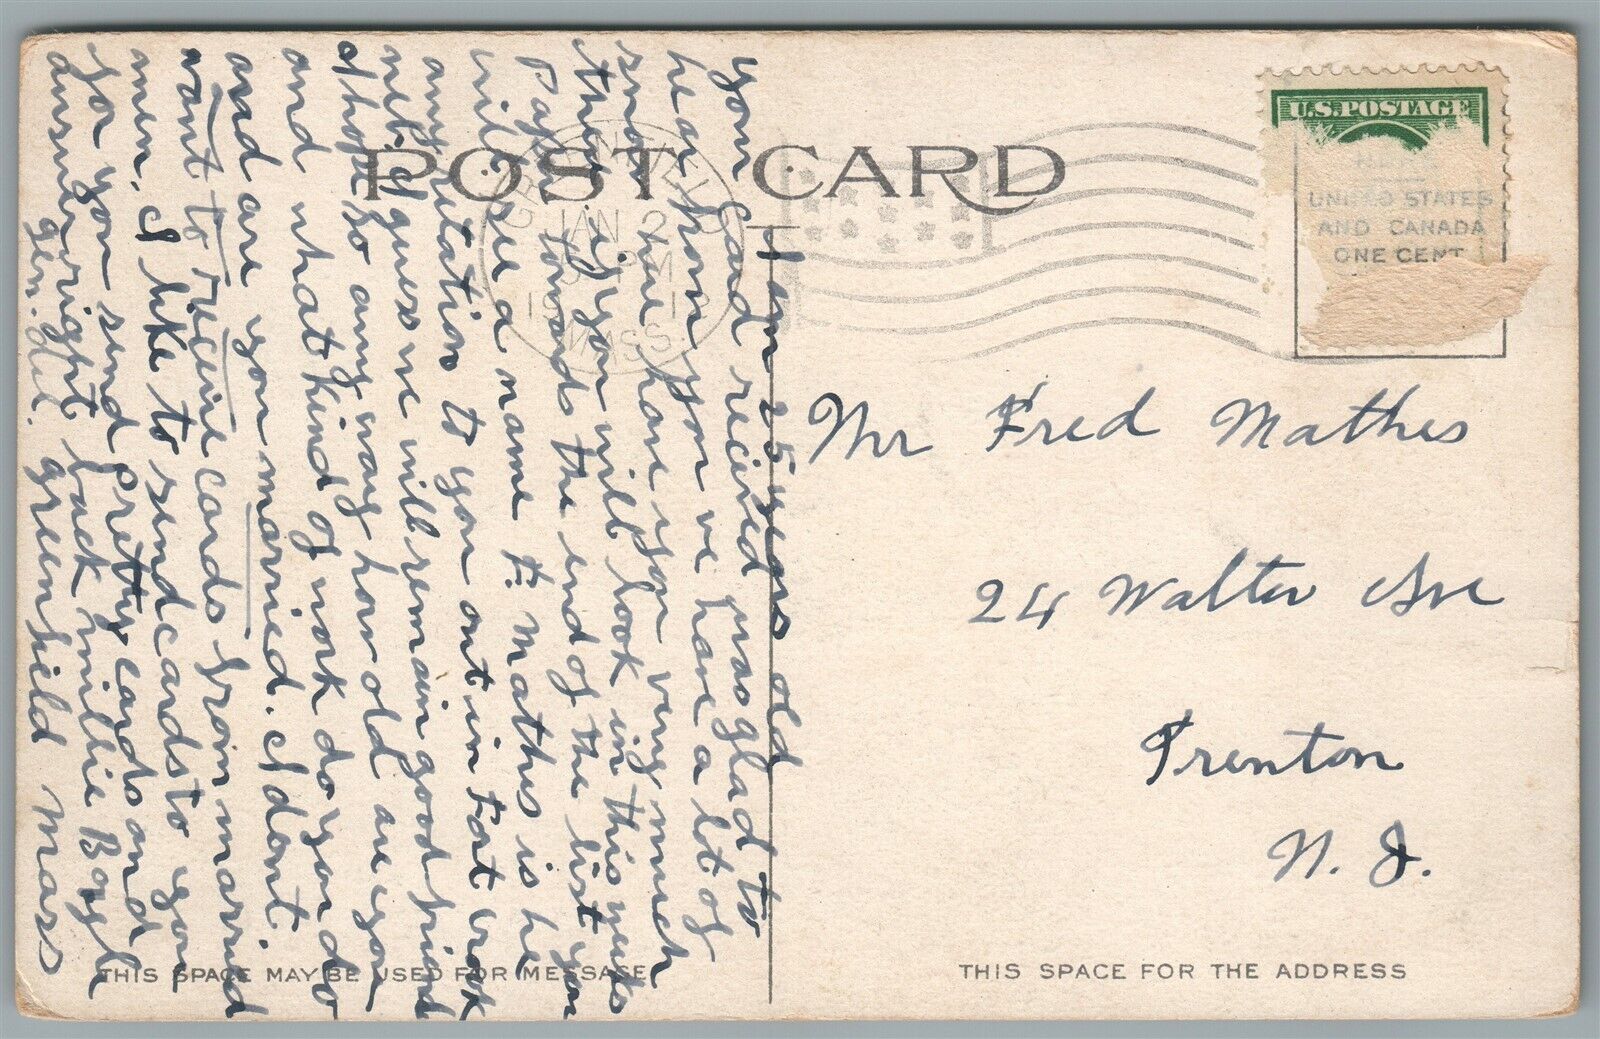 POST CARD
U.S. POSTAGE
UNITED STATES
AND CANADA
ONE CENT
GREENFIELD
JAN 2
PM
MASS.
I am 25 years old
you card received was glad to
hear from you we have a lot of
snow here have you very much
there. if you will look in this weeks
Paper towards the end of the list you
will see a name F. Mathis is he
any relation to you out in Fort
met. I guess we will remain good friend
I hope so any way how old are you
and what kind of work do you do
and are you married. I dont.
want to recieve cards from married
men. I like to send cards to you
for you send pretty cards and
answer right back millie Boyle
gen. del. greenfield Mass
Mr Fred Mathes
24 Walter Ave
Trenton
N. J.
THIS SPACE MAY BE USED FOR MESSAGE
THIS SPACE FOR THE ADDRESS